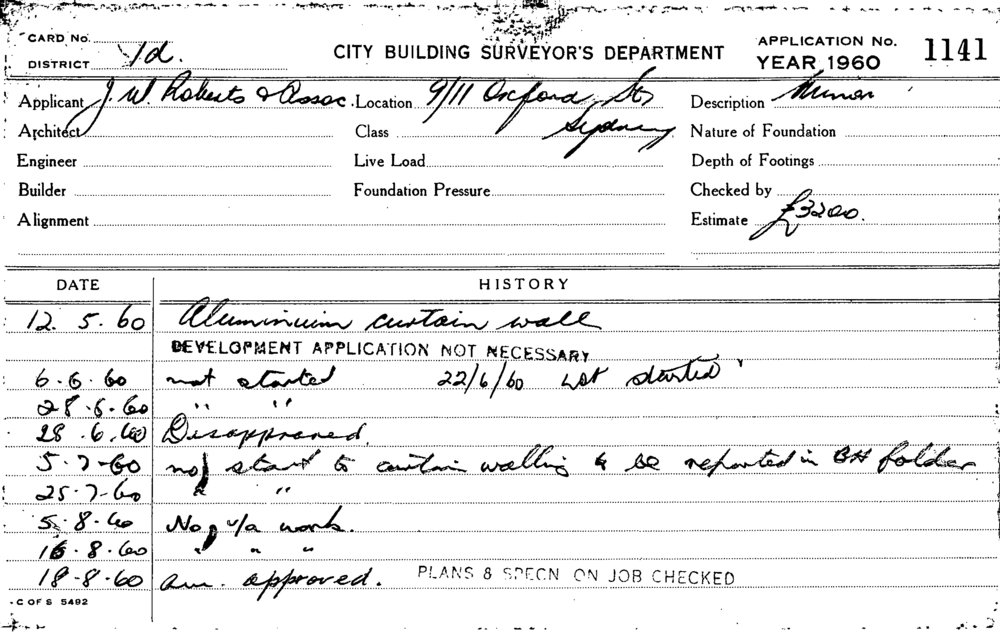 CARD No.
DISTRICT 1d.
CITY BUILDING SURVEYOR'S DEPARTMENT
APPLICATION No. 1141
YEAR 1960
Applicant J. W. Roberts & Assoc. Location 9/11 Oxford St, Description
Architect Class Sydney Nature of Foundation
Engineer Live Load Depth of Footings
Builder Foundation Pressure Checked by
Alignment Estimate £3200.
DATE HISTORY
12. 5. 60 Aluminium curtain wall
DEVELOPMENT APPLICATION NOT NECESSARY
6.6.60 not started 22/6/60 not started
28.6.60 " "
28.6.60 Disapproved.
5-7-60 no start to curtain walling to be reported in BH folder
25-7-60 " "
5.8.60 No u/a work.
16.8.60 " " "
18-8-60 am. approved. PLANS & SPECN ON JOB CHECKED
C OF S 5492